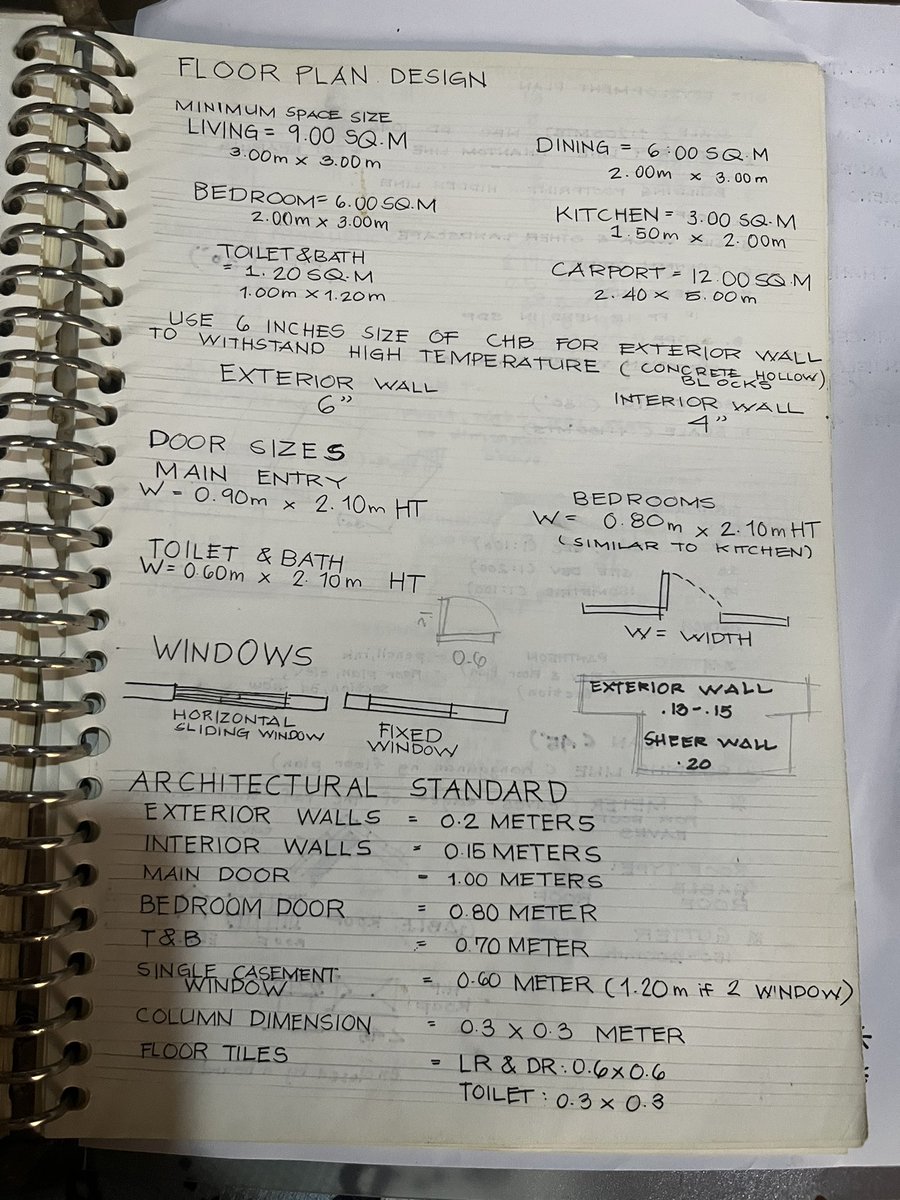 FLOOR PLAN DESIGN
MINIMUM SPACE SIZE
LIVING = 9.00 SQ.M
3.00m x 3.00m
DINING = 6:00 SQ.M
2.00m x 3.00m
BEDROOM = 6.00 SQ.M
2.00m x 3.00m
KITCHEN = 3.00 SQ.M
1.50m x 2.00m
TOILET & BATH
= 1.20 SQ.M
1.00m x 1.20m
CARPORT = 12.00 SQ.M
2.40 x 5.00m
USE 6 INCHES SIZE OF CHB FOR EXTERIOR WALL
TO WITHSTAND HIGH TEMPERATURE (CONCRETE HOLLOW)
BLOCKS
EXTERIOR WALL
6"
INTERIOR WALL
4"
DOOR SIZES
MAIN ENTRY
W = 0.90m x 2.10m HT
BEDROOMS
W = 0.80m x 2.10m HT
(SIMILAR TO KITCHEN)
TOILET & BATH
W = 0.60m x 2.10m HT
0.6
W = WIDTH
WINDOWS
HORIZONTAL
SLIDING WINDOW
FIXED
WINDOW
EXTERIOR WALL
.13-.15
SHEER WALL
.20
ARCHITECTURAL STANDARD
EXTERIOR WALLS = 0.2 METERS
INTERIOR WALLS = 0.15 METERS
MAIN DOOR = 1.00 METERS
BEDROOM DOOR = 0.80 METER
T&B = 0.70 METER
SINGLE CASEMENT = 0.60 METER (1.20m if 2 WINDOW)
WINDOW
COLUMN DIMENSION = 0.3 X 0.3 METER
FLOOR TILES = LR & DR: 0.6 x 0.6
TOILET: 0.3 x 0.3